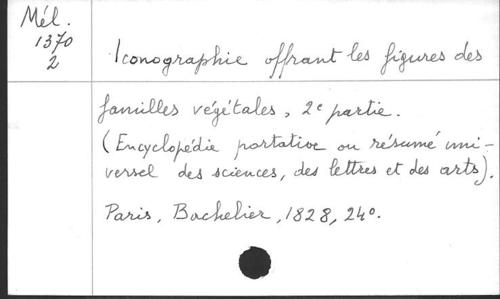 Mél.
1370
2
Iconographie offrant les figures des
familles végétales, 2e partie.
(Encyclopédie portative ou résumé uni-
versel des sciences, des lettres et des arts).
Paris, Bachelier, 1828, 24°.